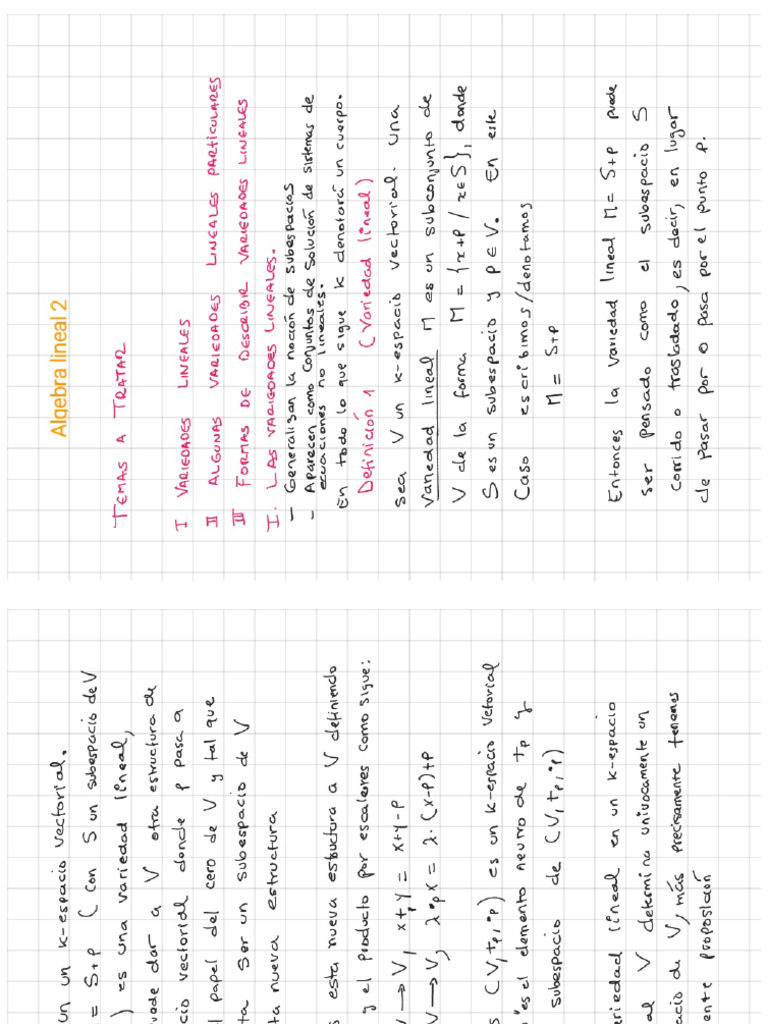 Algebra lineal 2
TEMAS A TRATAR
I VARIEDADES LINEALES
II ALGUNAS VARIEDADES LINEALES PARTICULARES
III FORMAS DE DESCRIBIR VARIEDADES LINEALES
I. LAS VARIEDADES LINEALES.
- Generalizan la noción de subespacios
- Aparecen como conjuntos de solución de sistemas de
ecuaciones no lineales.
En todo lo que sigue K denotará un cuerpo.
Definición 1 (Variedad lineal)
sea V un K-espacio vectorial. una
variedad lineal M es un subconjunto de
V de la forma M = {x+p / x∈S}, donde
S es un subespacio y p∈V. En este
Caso escribimos/denotamos
M = S+p
Entonces la variedad lineal M = S+p puede
ser pensado como el subespacio S
corrido o trasladado, es decir, en lugar
de pasar por 0 pasa por el punto p.
un K-espacio vectorial.
= S+p (con S un subespacio de V
) es una variedad lineal,
dar a V otra estructura de
vectorial donde p pasa a
papel del cero de V y tal que
ser un subespacio de V
nueva estructura
esta nueva estructura a V definiendo
y el producto por escalares como sigue:
→ V, x +ₚ y = x+y-p
→ V, λ ·ₚ x = λ·(x-p)+p
(V, +ₚ, ·ₚ) es un K-espacio vetorial
es el elemento neutro de +ₚ y
subespacio de (V, +ₚ, ·ₚ)
lineal en un K-espacio
V determina univocamente un
de V, más precisamente tenemos
proposición